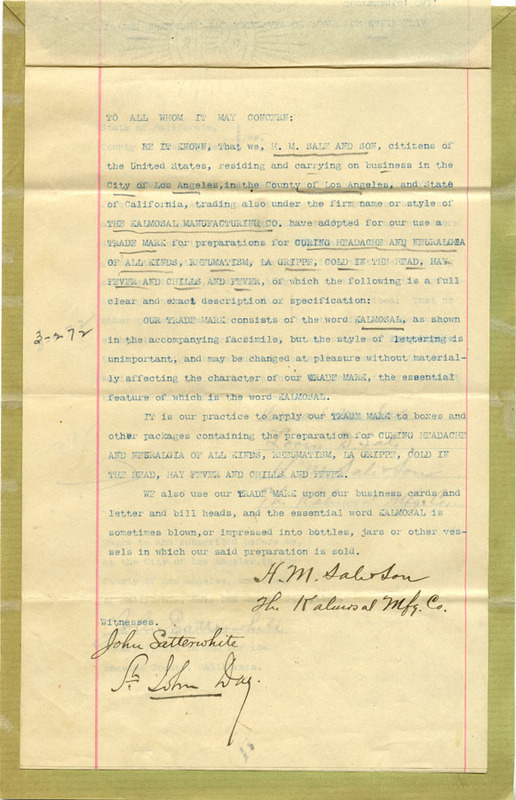 TO ALL WHOM IT MAY CONCERN:
BE IT KNOWN, That we, H. M. SALE AND SON, citizens of
the United States, residing and carrying on business in the
City of Los Angeles, in the County of Los Angeles, and State
of California, trading also under the firm name or style of
THE KALMOSAL MANUFACTURING CO. have adopted for our use a
TRADE MARK for preparations for CURING HEADACHE AND NEURALGIA
OF ALL KINDS, RHEUMATISM, LA GRIPPE, COLD IN THE HEAD, HAY
FEVER AND CHILLS AND FEVER, of which the following is a full
clear and exact description or specification:
OUR TRADE MARK consists of the word KALMOSAL, as shown
3-272
in the accompanying facsimile, but the style of lettering is
unimportant, and may be changed at pleasure without material-
ly affecting the character of our TRADE MARK, the essential
feature of which is the word KALMOSAL.
IT is our practice to apply our TRADE MARK to boxes and
other packages containing the preparation for CURING HEADACHE
AND NEURALGIA OF ALL KINDS, RHEUMATISM, LA GRIPPE, COLD IN
THE HEAD, HAY FEVER AND CHILLS AND FEVER.
WE also use our TRADE MARK upon our business cards and
letter and bill heads, and the essential word KALMOSAL is
sometimes blown, or impressed into bottles, jars or other ves-
sels in which our said preparation is sold.
H. M. Sale & Son
The Kalmosal Mfg. Co.
Witnesses.
John Satterwhite
St John Day.